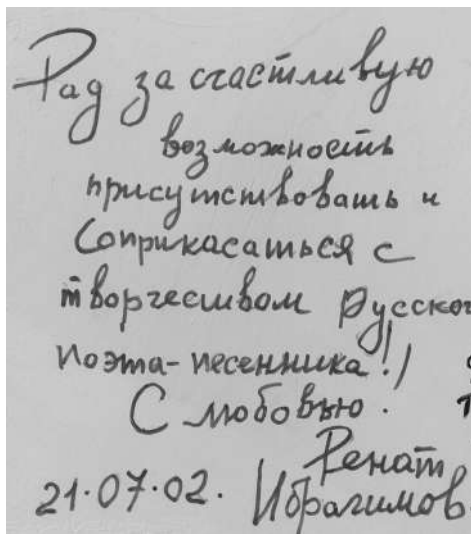 Рад за счастливую
возможность
присутствовать и
Соприкасаться с
творчеством Русског
поэта-песенника!!
С любовью.
Ренат
21.07.02. Ибрагимов.